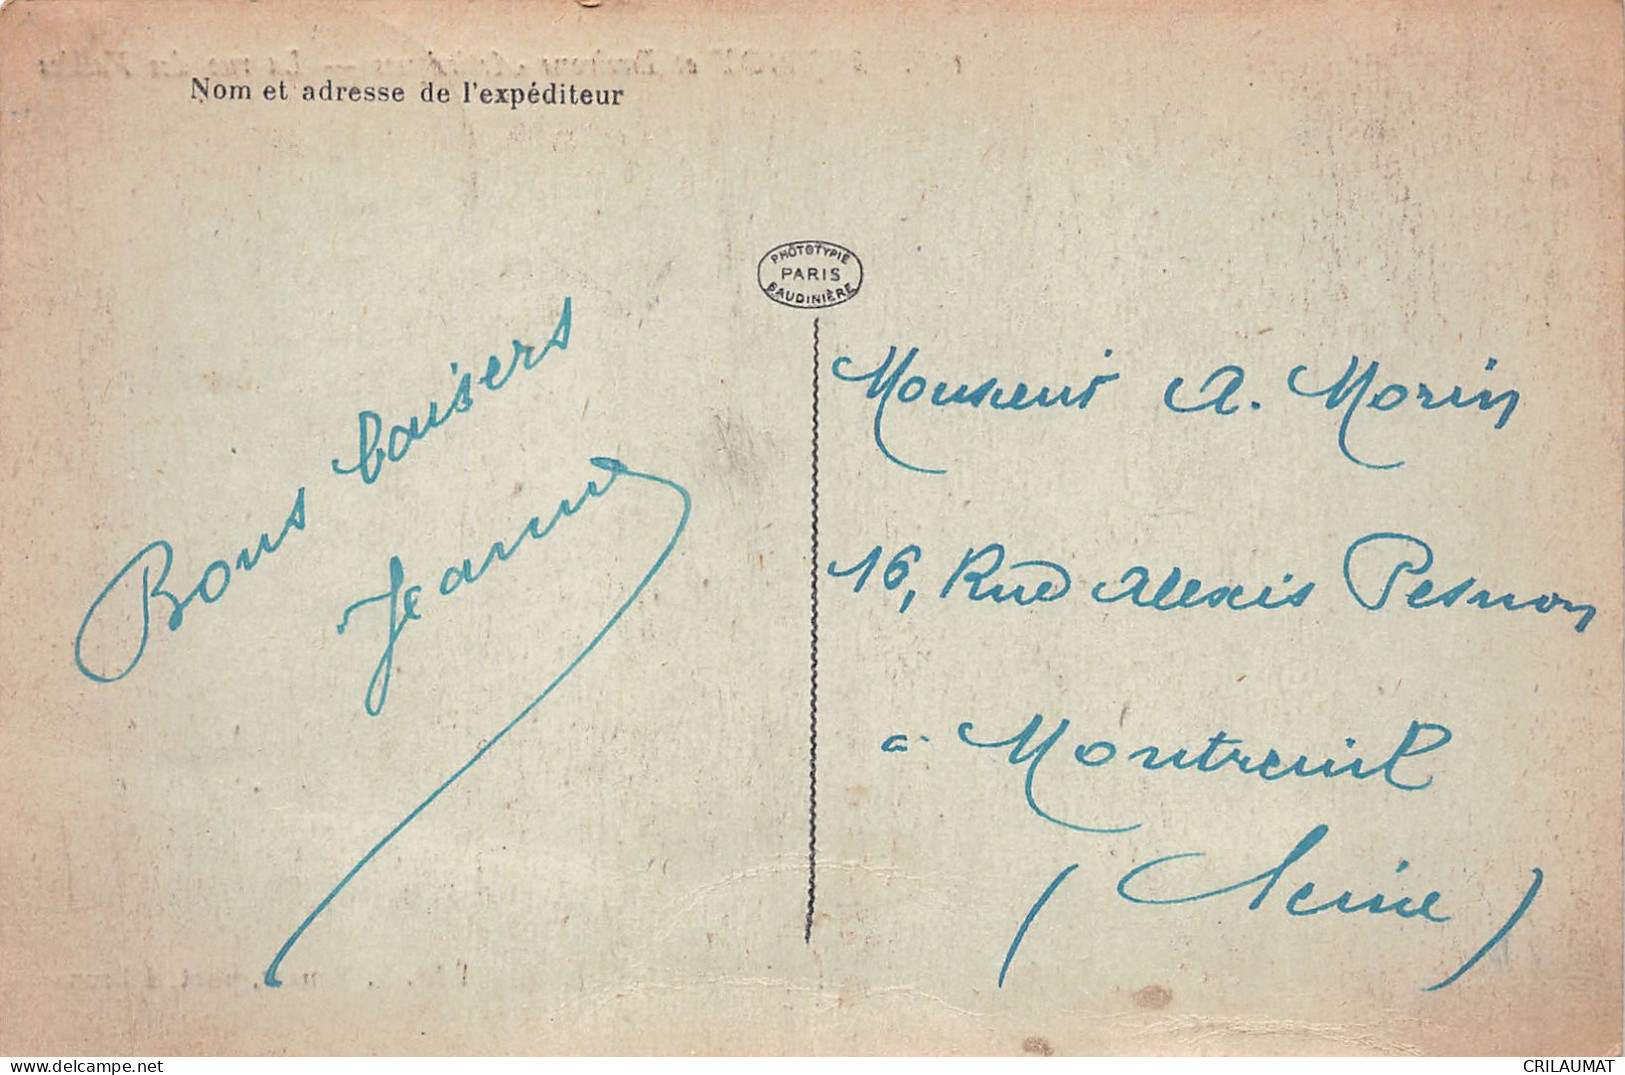 Nom et adresse de l'expéditeur
PHOTOTYPIE
PARIS
BAUDINIÈRE
Bons baisers
Jeanne
Monsieur A. Morin
16, Rue Alexis Pesnon
a Montreuil
(Seine)
CRILAUMAT